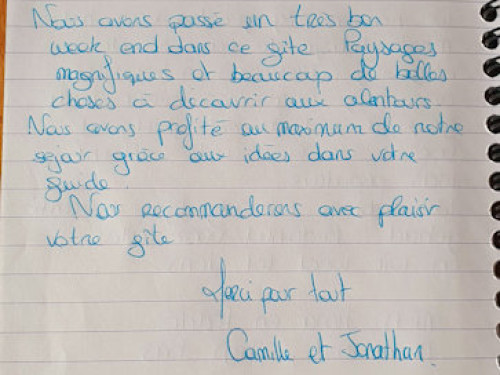 Nous avons passé un très bon
week end dans ce gîte. Paysages
magnifiques et beaucoup de belles
choses à découvrir aux alentours
Nous avons profité au maximum de notre
séjour grâce aux idées dans votre
guide.
Nous recommanderons avec plaisir
votre gîte
Merci pour tout
Camille et Jonathan.